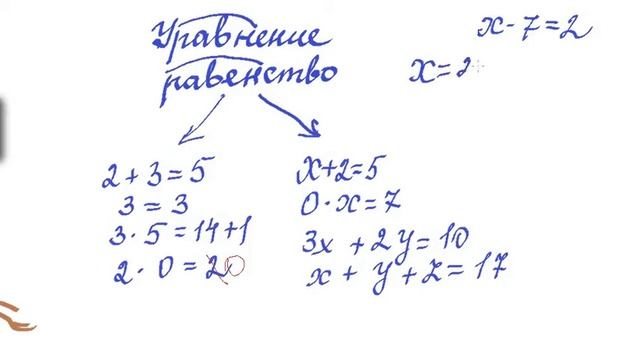 Уравнение
равенство
x - 7 = 2
x = 2
2 + 3 = 5
3 = 3
3 · 5 = 14 + 1
2 · 0 = 20
x + 2 = 5
0 · x = 7
3x + 2y = 10
x + y + z = 17